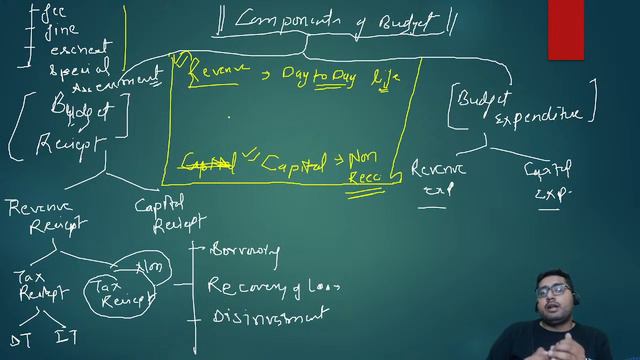 fee
fine
escheat
special
Assessment
|| Components of Budget ||
Revenue → Day to Day life
Capital Capital → Non
Recc
Budget
Reciept
Budget
Expenditure
Revenue
Reciept
Capital
Reciept
Revenue
Exp
Capital
Exp.
Tax
Reciept
Non
Tax
Reciept
DT
IT
Borrowing
Recovery of Loans
Disinvesment